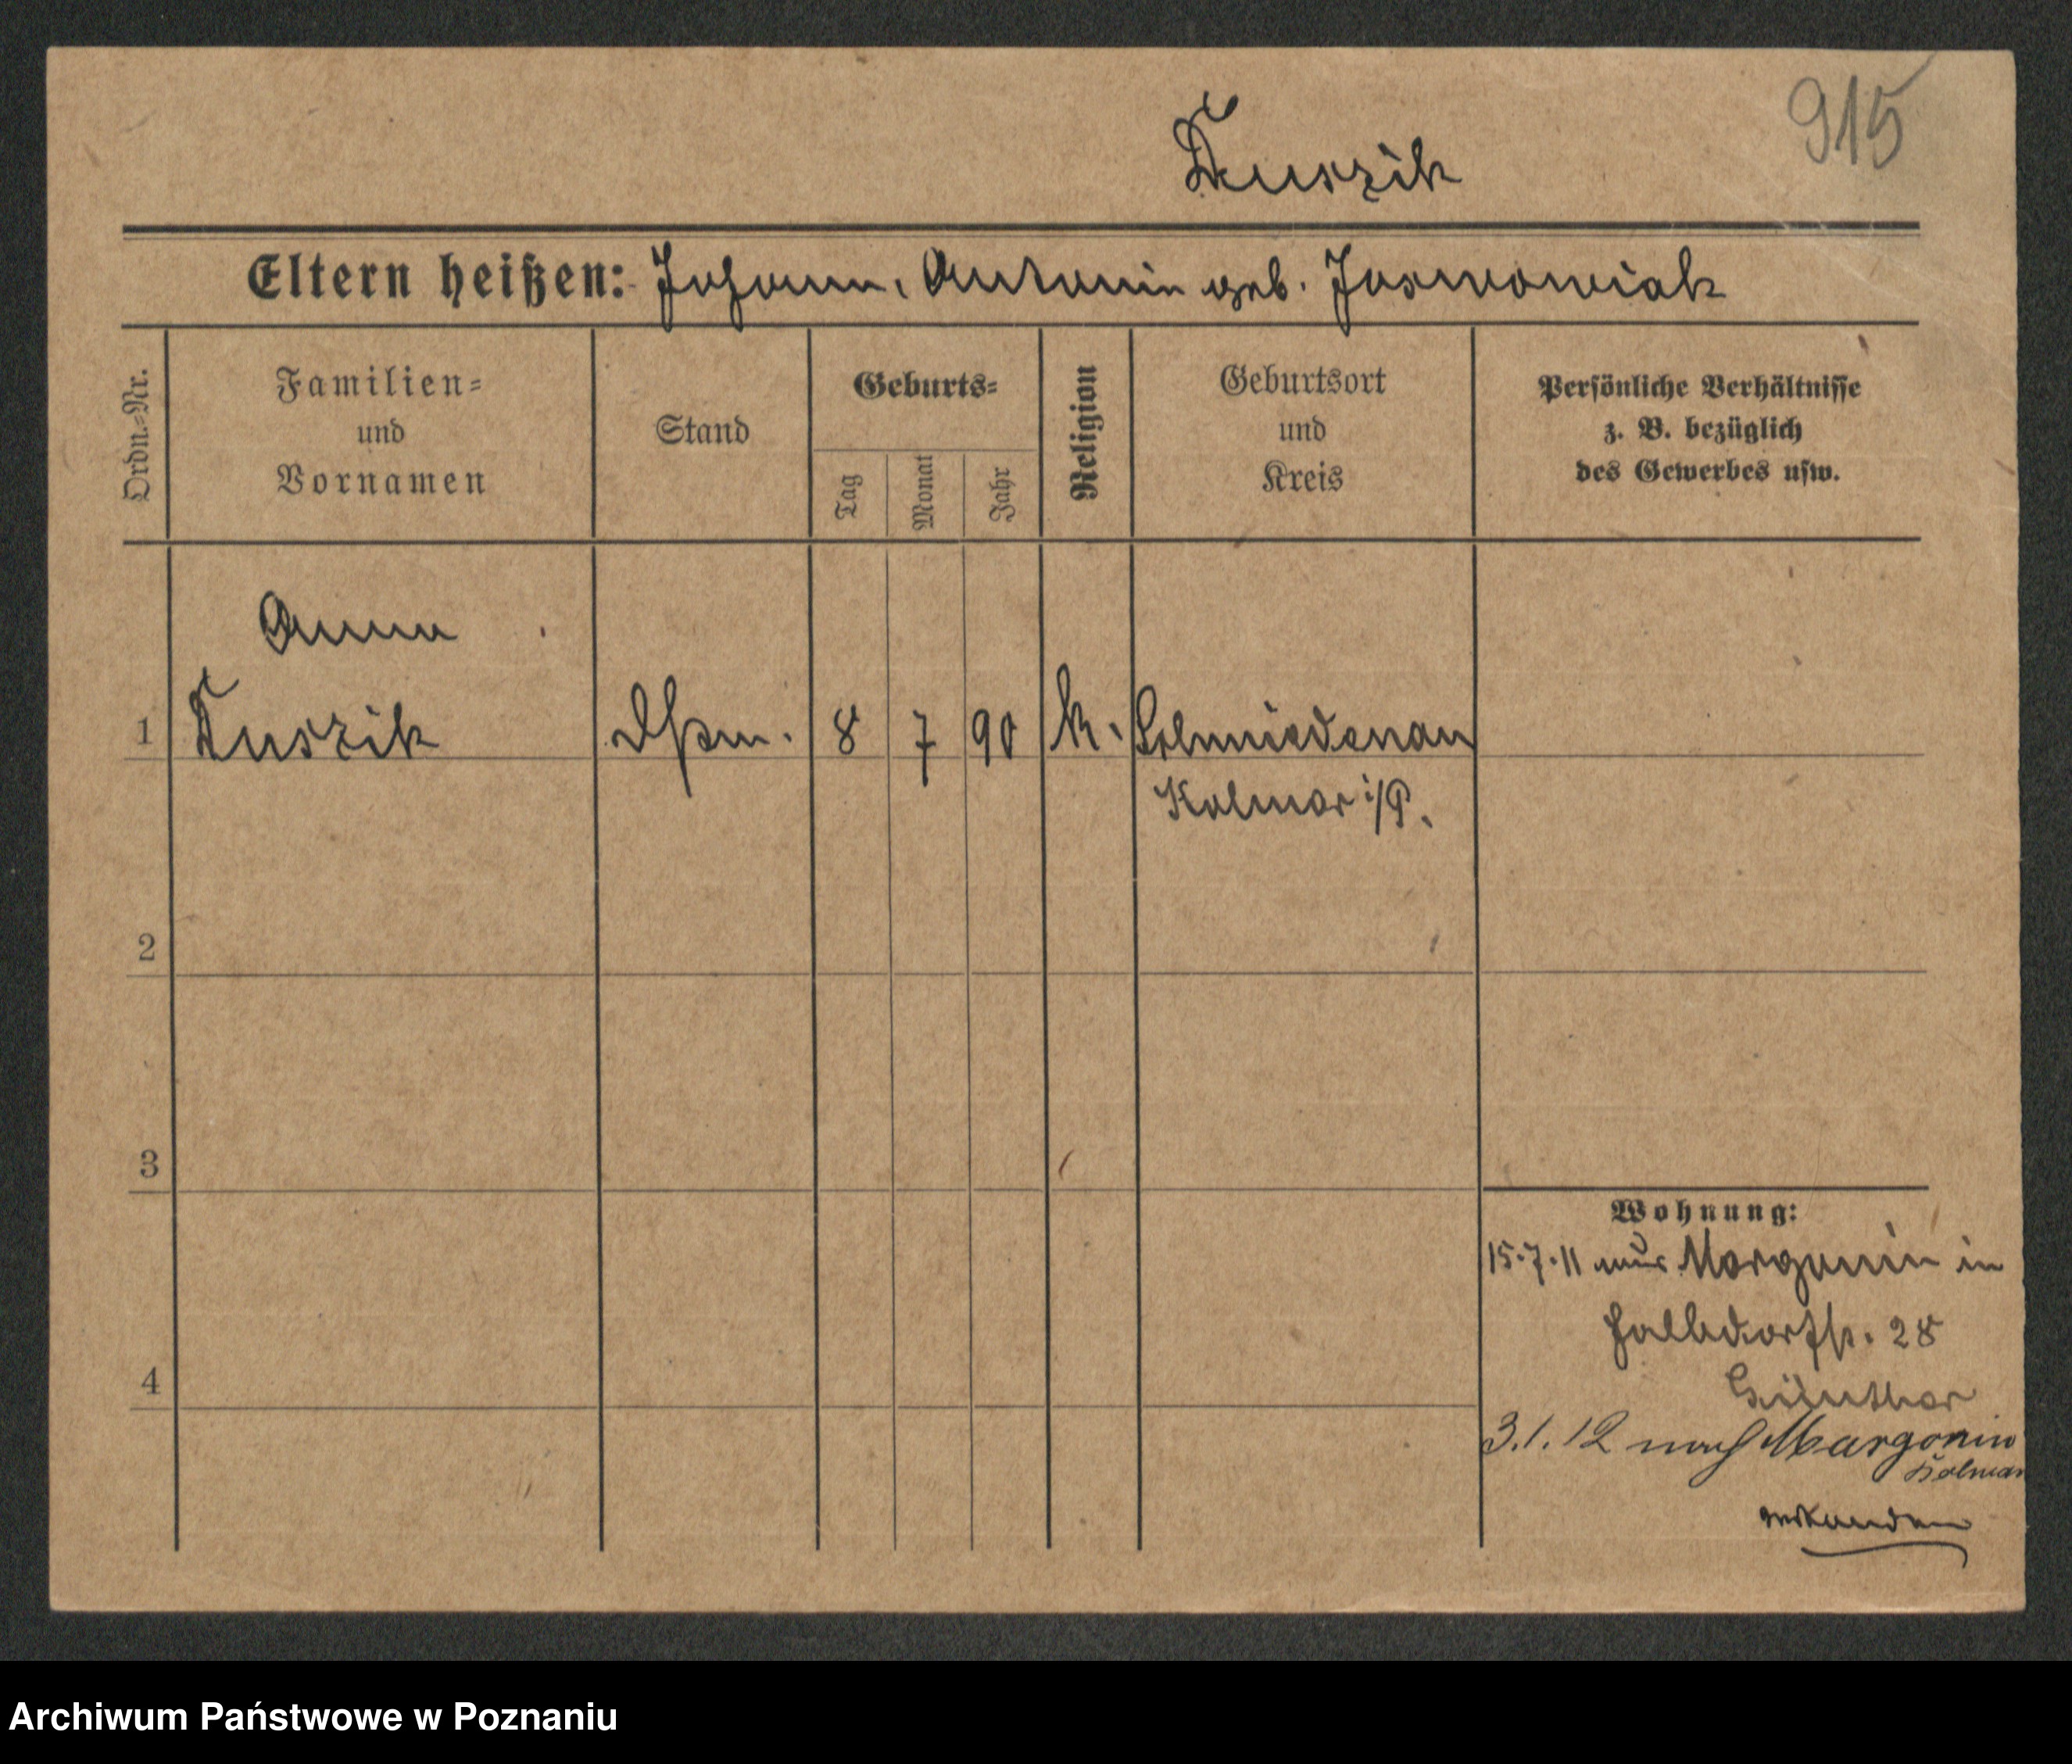 915
Kuszik
Eltern heißen: Johann, Antonie geb. Joswowiak
Ordn.-Nr.
Familien-
und
Vornamen
Stand
Geburts-
Tag
Monat
Jahr
Religion
Geburtsort
und
Kreis
Persönliche Verhältnisse
z. B. bezüglich
des Gewerbes usw.
Anna
1 Kuszik 8 7 90 k. Schmiedenau
Kolmar i/P.
2
3
4
Wohnung:
15.7.11 aus Margonin in
Halbdorfstr. 28
Günther
3.1.12 nach Margonin
Kolmar